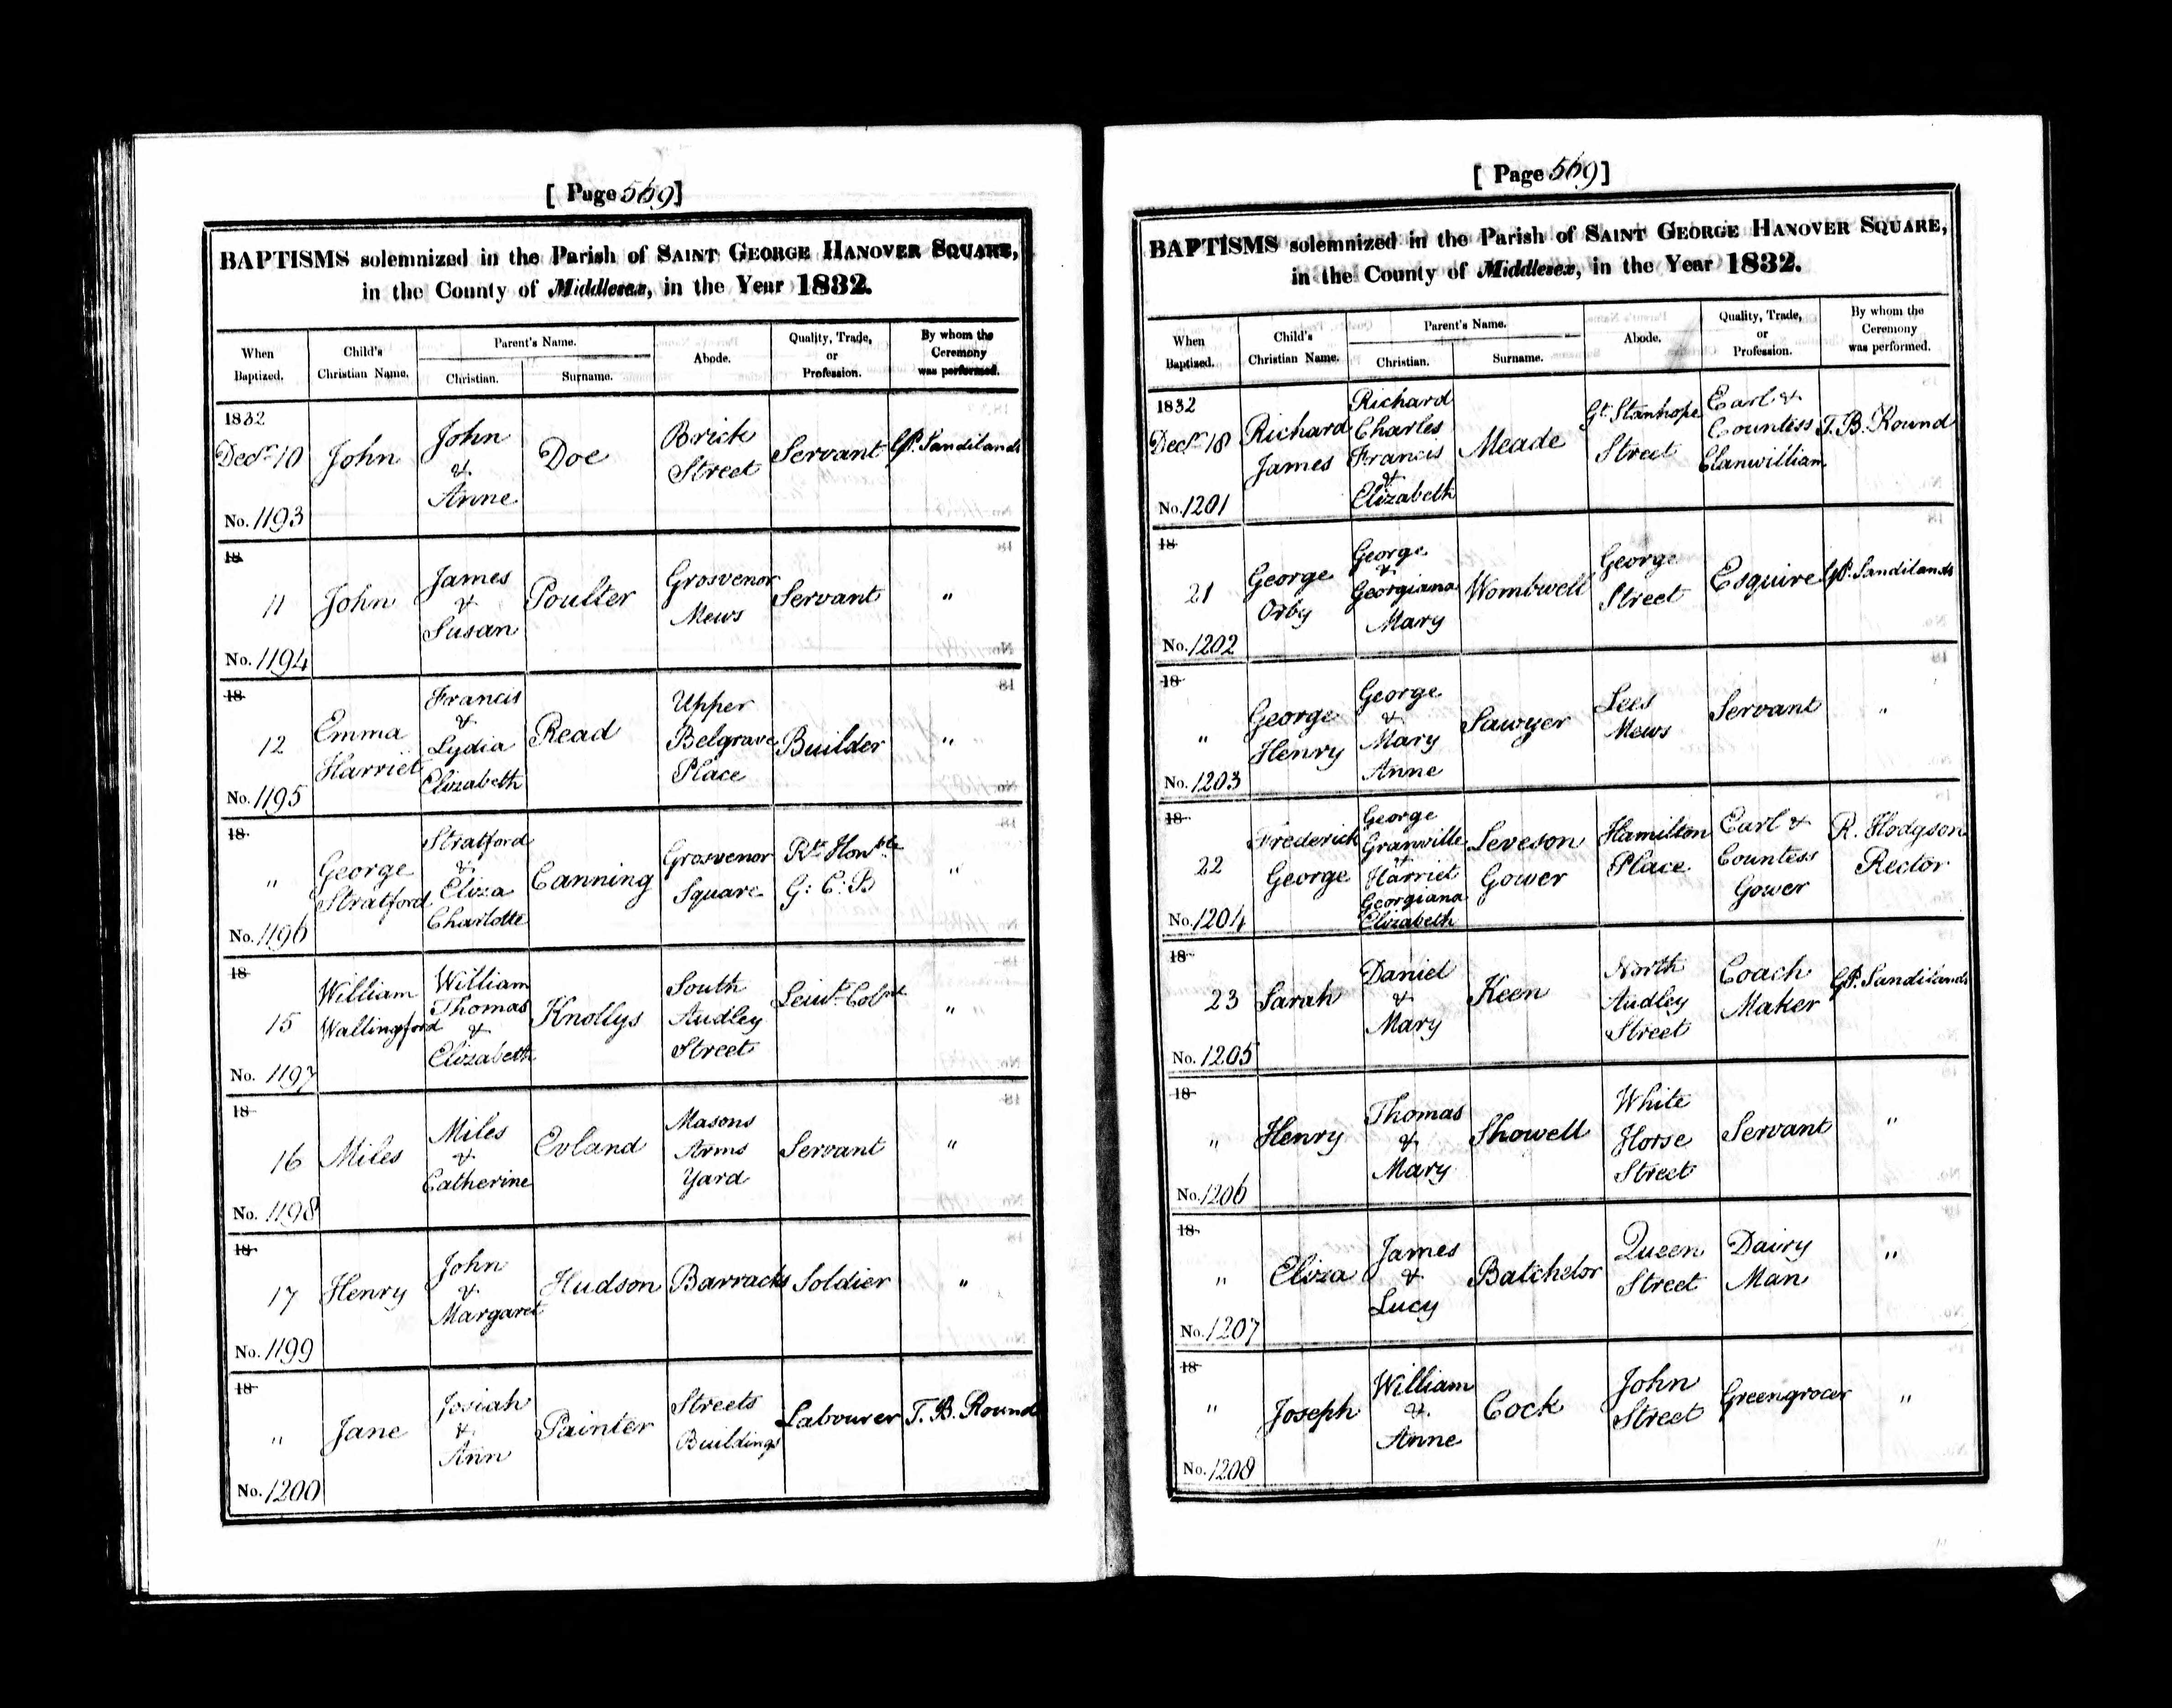 [ Page 569]
BAPTISMS solemnized in the Parish of SAINT GEORGE HANOVER SQUARE,
in the County of Middlesex, in the Year 1832.
When Baptized. Child's Christian Name. Parent's Name. Christian. Surname. Abode. Quality, Trade, or Profession. By whom the Ceremony was performed.
1832
Decr 10 John John & Anne Doe Brick Street Servant GP. Sandilands
No. 1193
18
11 John James & Susan Poulter Grosvenor Mews Servant "
No. 1194
18
12 Emma Harriet Francis & Lydia Elizabeth Read Upper Belgrave Place Builder "
No. 1195
18
" George Stratford Stratford & Eliza Charlotte Canning Grosvenor Square Rt Honble G: C: B "
No. 1196
18
15 William Wallingford William Thomas & Elizabeth Knollys South Audley Street Leiut Colnl "
No. 1197
18
16 Miles Miles & Catherine Evland Masons Arms Yard Servant "
No. 1198
18
17 Henry John & Margaret Hudson Barracks Soldier "
No. 1199
18
" Jane Josiah & Ann Painter Streets Buildings Labourer T. B. Round
No. 1200
[ Page 569]
BAPTISMS solemnized in the Parish of SAINT GEORGE HANOVER SQUARE,
in the County of Middlesex, in the Year 1832.
When Baptized. Child's Christian Name. Parent's Name. Christian. Surname. Abode. Quality, Trade, or Profession. By whom the Ceremony was performed.
1832
Decr 18 Richard James Richard Charles Francis & Elizabeth Meade Gt Stanhope Street Earl & Countess Clanwilliam T. B. Round
No. 1201
18
21 George Orby George & Georgiana Mary Wombwell George Street Esquire GP. Sandilands
No. 1202
18
" George Henry George & Mary Anne Sawyer Lees Mews Servant "
No. 1203
18
22 Frederick George George Granville & Harriet Georgiana Elizabeth Leveson Gower Hamilton Place Earl & Countess Gower R. Hodgson Rector
No. 1204
18
23 Sarah Daniel & Mary Keen North Audley Street Coach Maker GP. Sandilands
No. 1205
18
" Henry Thomas & Mary Showell White Horse Street Servant "
No. 1206
18
" Eliza James & Lucy Batchelor Queen Street Dairy Man "
No. 1207
18
" Joseph William & Anne Cock John Street Greengrocer "
No. 1208